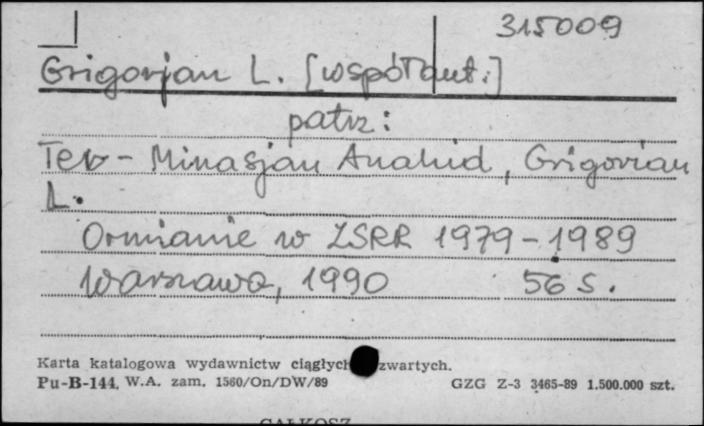 315009
Grigorjan L. [współaut.]
patrz:
Ter-Minasjan Anahid, Grigorian
L.
Ormianie w ZSRR 1979-1989
Warszawa, 1990 56 s.
Karta katalogowa wydawnictw ciągłych zwartych.
Pu-B-144. W.A. zam. 1560/On/DW/89 GZG Z-3 3465-89 1.500.000 szt.